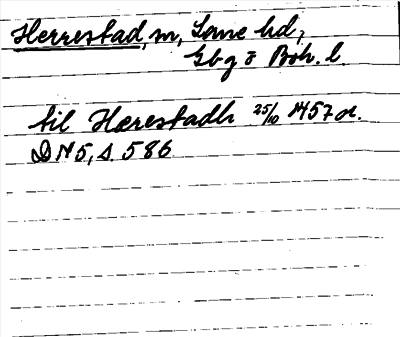 Herrestad, m, Lane hd,
Gbg o Boh. l.
til Herestadh 25/10 1457 or.
DN 5, s. 586